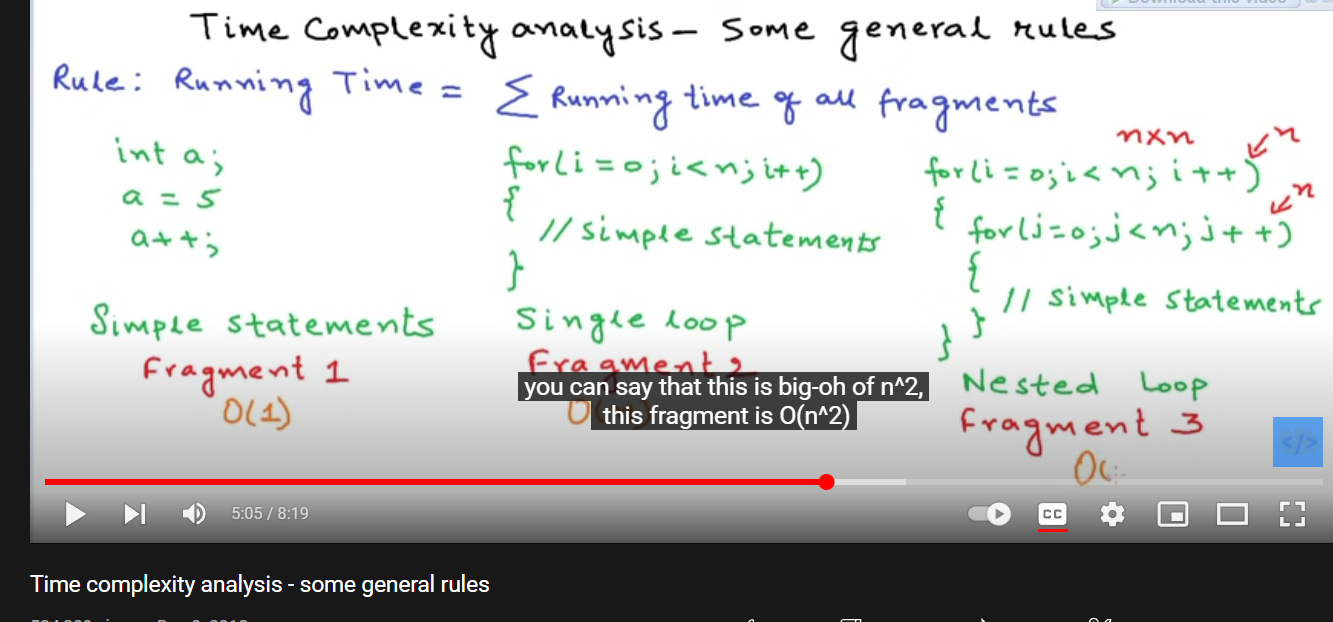 Download this video
Time Complexity analysis - Some general rules
Rule: Running Time = Σ Running time of all fragments
int a;
a = 5
a++;
Simple statements
Fragment 1
O(1)
for(i = 0; i < n; i++)
{
// simple statements
}
Single loop
Fragment 2
n×n
for(i = 0; i < n; i++) n
{ for(j=0; j<n; j++) n
{
// Simple Statements
}
}
Nested Loop
Fragment 3
O(
you can say that this is big-oh of n^2,
this fragment is O(n^2)
</>
5:05 / 8:19
CC
Time complexity analysis - some general rules